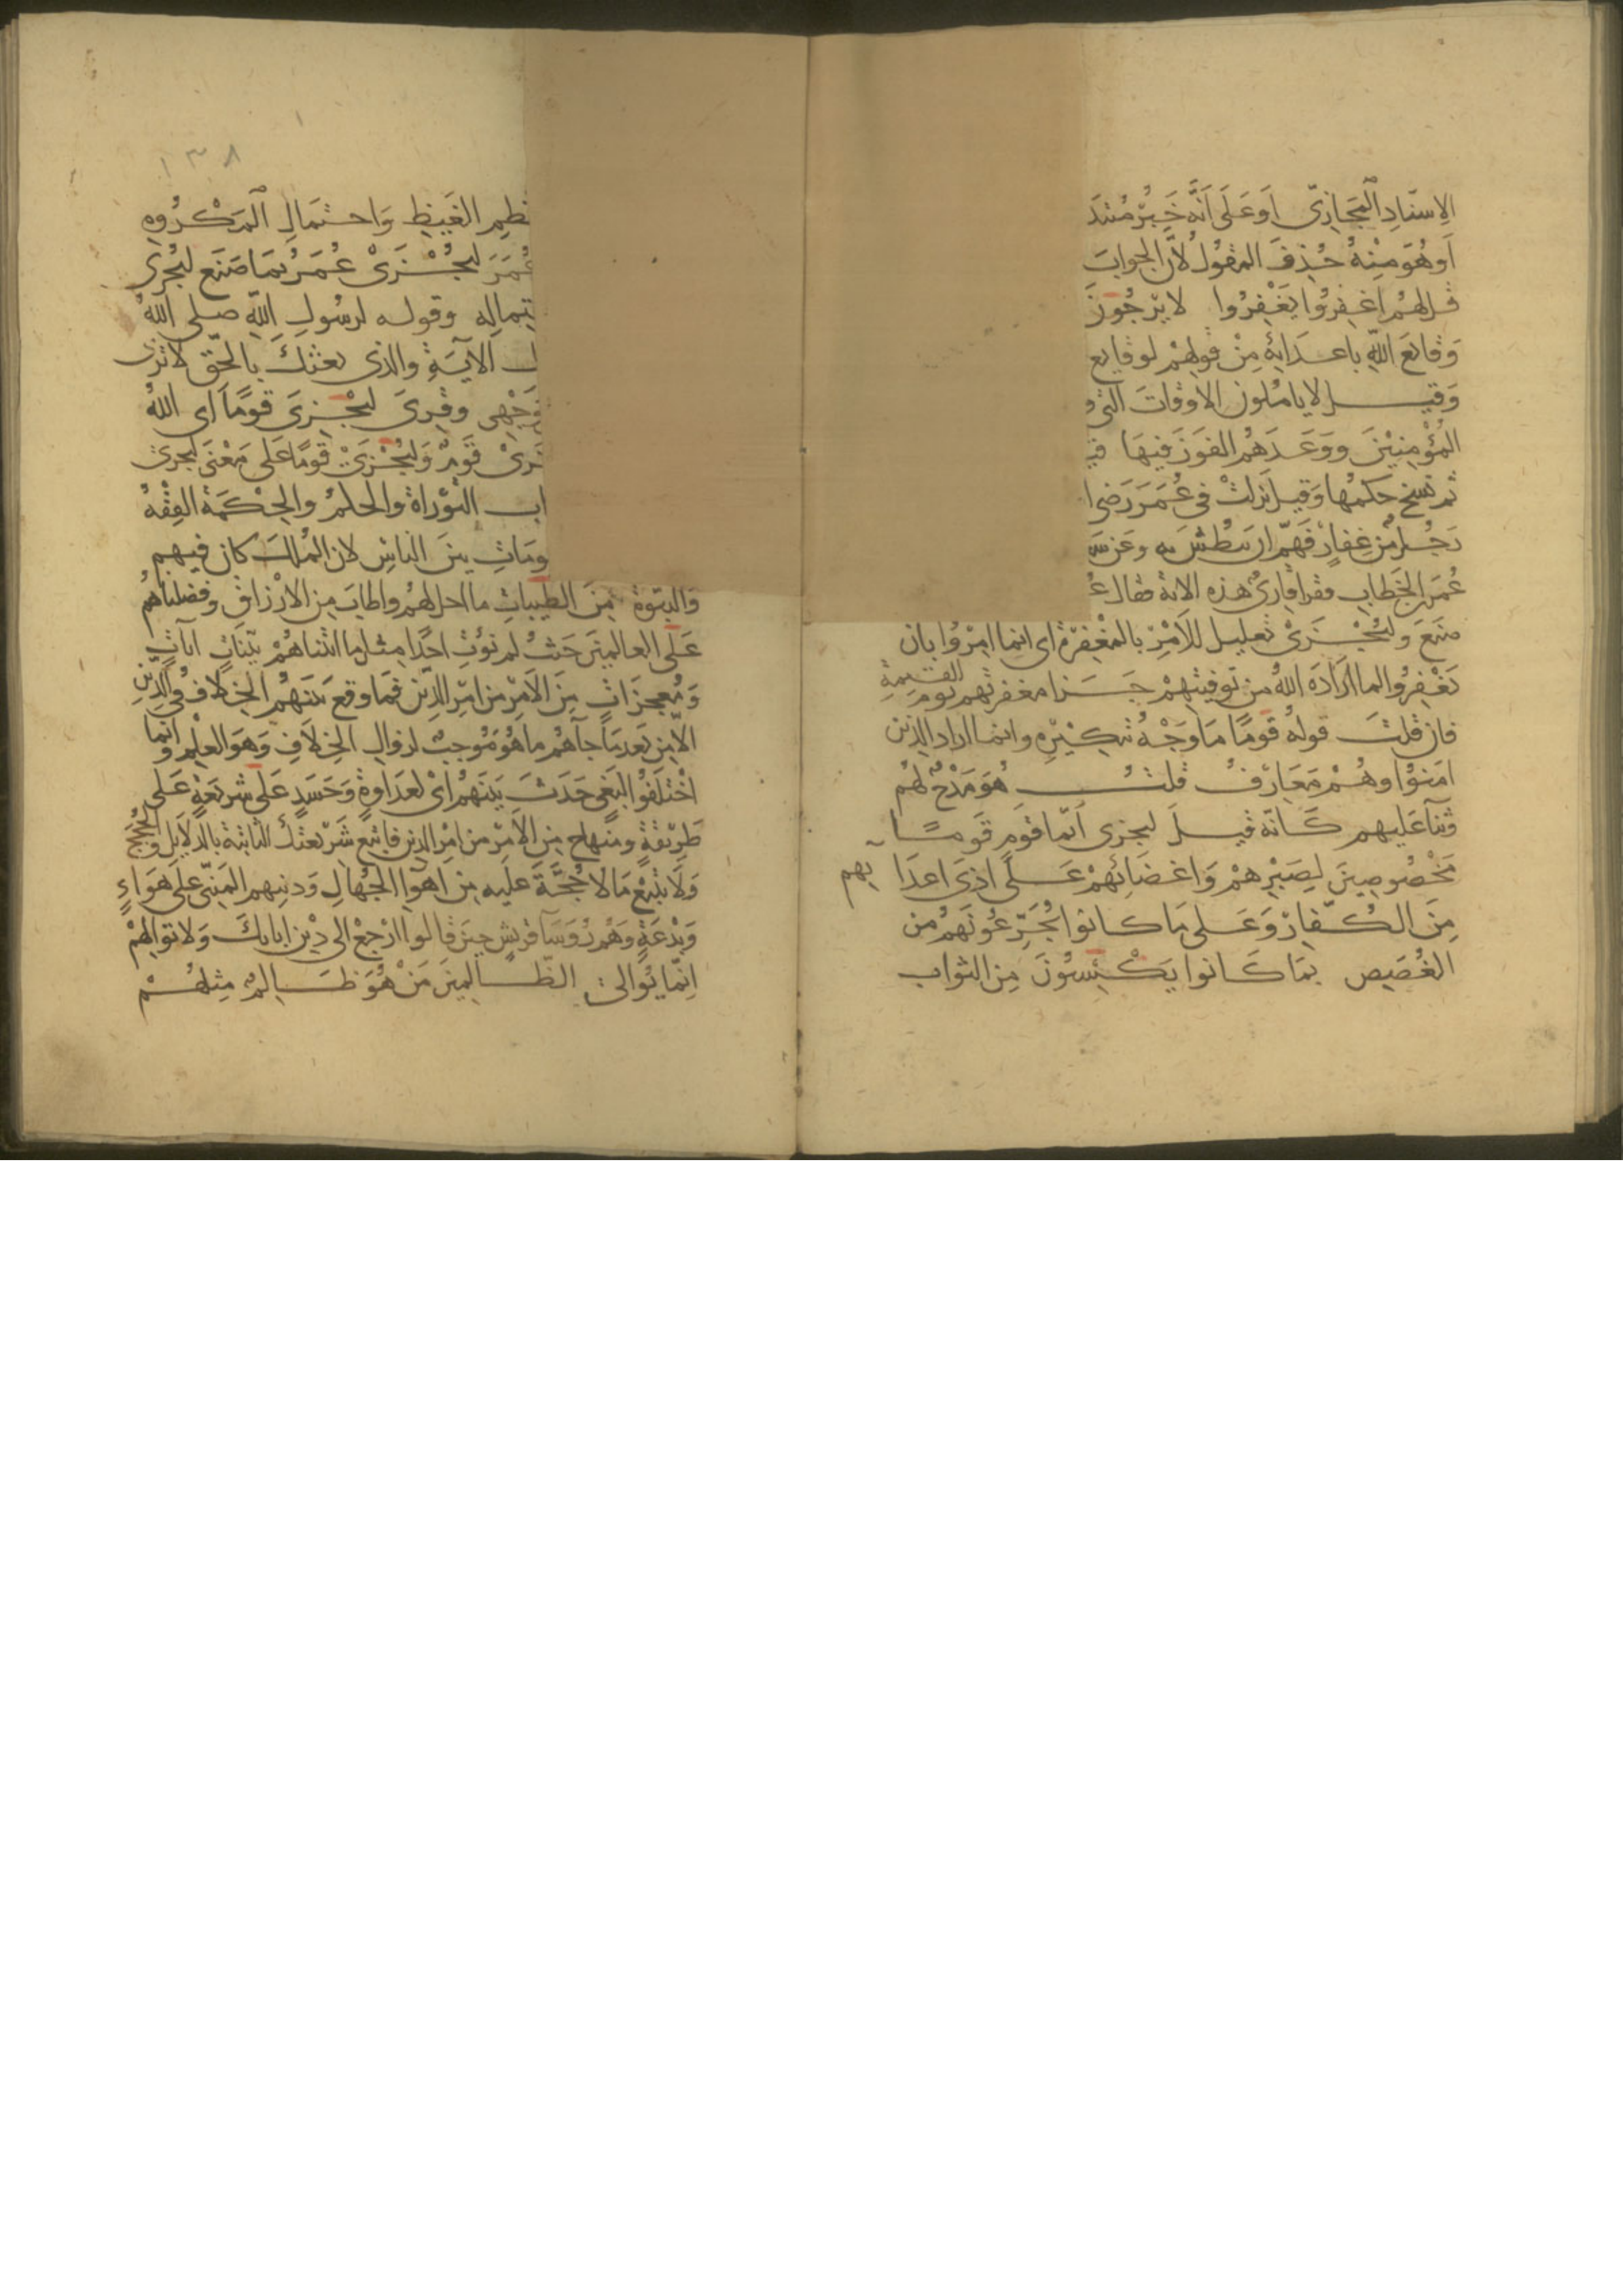 الاسناد المجازى او على انه خبر مبتدا
او هو منه حذف المقول لان الجواب
قل لهم اغفروا يغفروا لا يرجون
وقائع الله باعدائه من قولهم لوقائع
وقيل لا ياملون الاوقات التى و
المؤمنين ووعدهم الفوز فيها قيـ
ثم نسخ حكمها وقيل نزلت فى عمر رضى ا
رجل من غفار فهم ان يبطش به وعن سـ
عمر بن الخطاب فقرا قارئ هذه الاية فقال عـ
صنع وليجزى تعليل للامر بالمغفرة اى انما امروا بان
يغفروا لما اراده الله من توفيتهم جزا مغفرتهم يوم القيمة
فان قلت قوله قوما ما وجه تنكيره وانما اراد الذين
امنوا وهم معارف قلت هو مدح لهم
وثنآ عليهم كانه قيل ليجزى ايما قوم قوما
مخصوصين لصبرهم واغضائهم على اذى اعدا يهم
من الكفار وعلى ما كانوا يجرعونهم من
الغصص بما كانوا يكسبون من الثواب
١٣٨
ـظم الغيظ واحتمال المكروه
عمر ليجزى عمر بما صنع ليجزى
ـتماله وقوله لرسول الله صلى الله
ـل الاية والذى بعثك بالحق لا ترى
وجهى وقرى ليجزى قوما اى الله
ـزى قوم وليجزى قوما على معنى ليجزى
ـاب التوراة والحلم والحكمة الفقه
ـومات بين الناس لان الملك كان فيهم
والنبوة من الطيبات ما احل لهم واطاب من الارزاق وفضلناهم
على العالمين حيث لم نؤت احدا مثل ما اتيناهم بينات ايات
ومعجزات من الامر من امر الدين فما وقع بينهم الخلاف فى الدين
الا من بعد ما جآهم ما هو موجب لزوال الخلاف وهو العلم وانما
اختلفوا لبغى حدث بينهم اى لعداوة وحسد على شريعة على
طريقة ومنهاج من الامر من امر الدين فاتبع شريعتك الثابتة بالدلايل والحجج
ولا تتبع ما لا حجة عليه من اهوآ الجهال ودينهم المبنى على هواء
وبدعة وهم رؤسآ قريش حين قالوا ارجع الى دين ابايك ولا توالهم
انما يوالى الظالمين من هو ظالم مثلهم